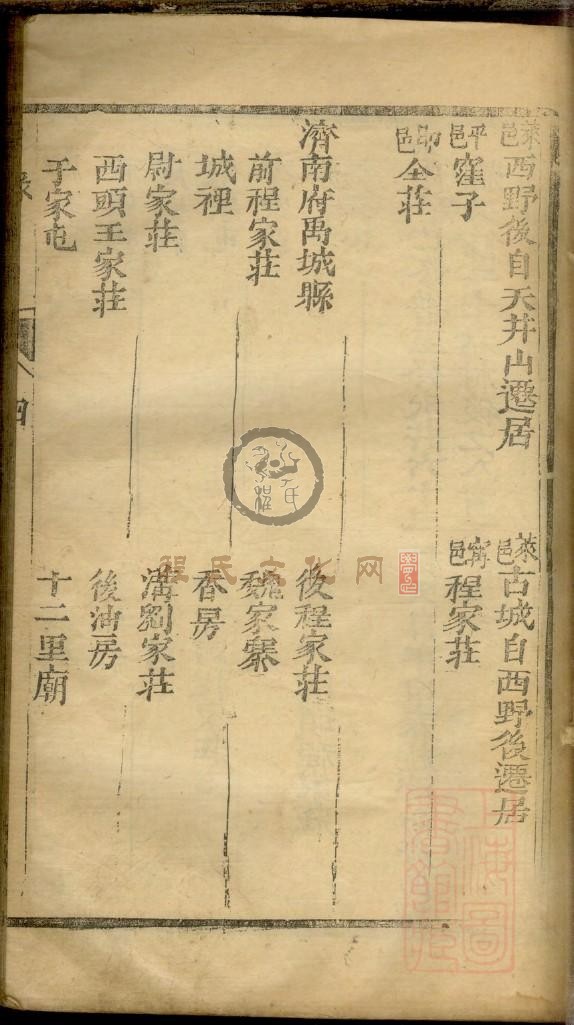 萊邑西野後自天井山遷居
萊邑古城自西野後遷居
平邑窪子
程家荘
即邑全荘
濟南府禹城縣
後程家荘
前程家荘
魏家寨
城裡
香房
尉家荘
溝劉家荘
西頭王家荘
後油房
于家屯
十二里廟
四
程氏文化网